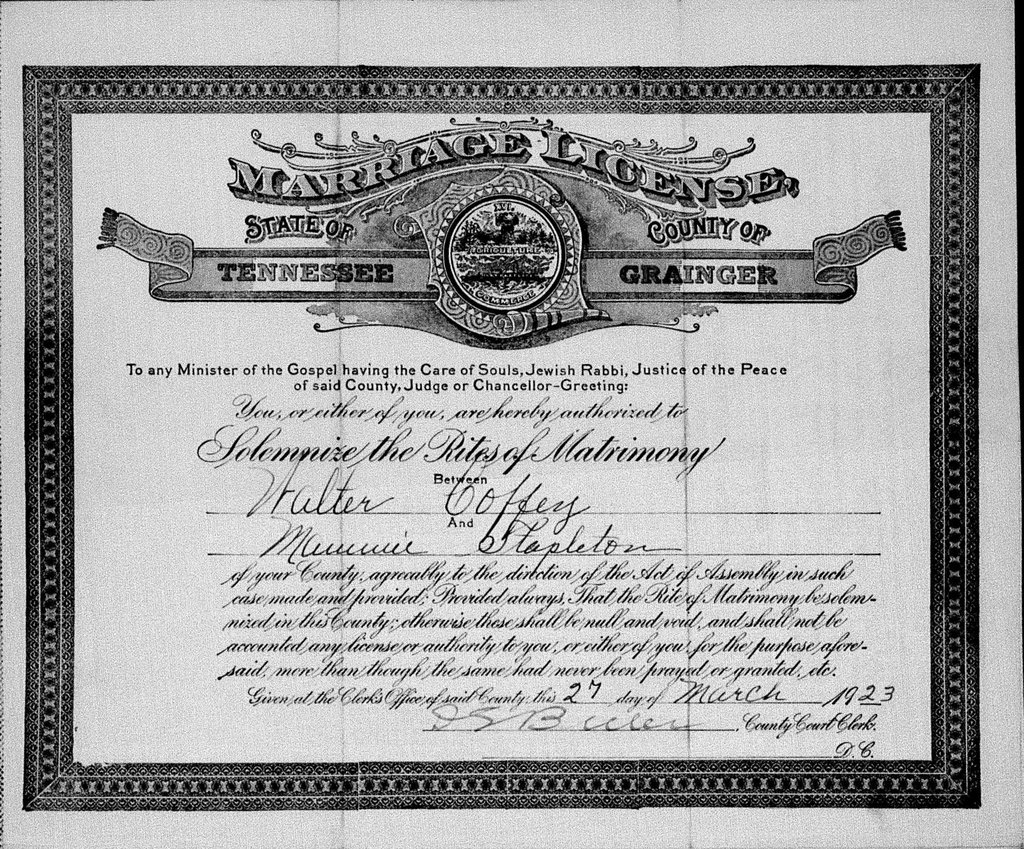 MARRIAGE LICENSE,
STATE OF
COUNTY OF
TENNESSEE
GRAINGER
XVI.
AGRICULTURE
COMMERCE
To any Minister of the Gospel having the Care of Souls, Jewish Rabbi, Justice of the Peace
of said County, Judge or Chancellor-Greeting:
You, or either of you, are hereby authorized to
Solemnize the Rites of Matrimony
Between
Walter Coffey
And
Mammie Stapleton
of your County, agreeably to the direction of the Act of Assembly in such
case made and provided: Provided always, That the Rite of Matrimony be solem-
nized in this County; otherwise these shall be null and void, and shall not be
accounted any license or authority to you, or either of you, for the purpose afore-
said, more than though the same had never been prayed or granted, etc.
Given at the Clerk's Office of said County this 27 day of March 1923
County Court Clerk.
D. C.